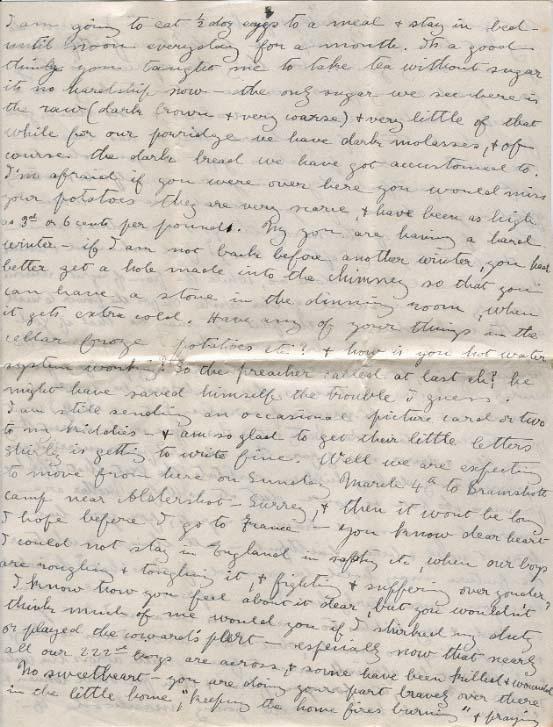 I am going to eat ½ doz eggs to a meal & stay in bed
until noon everyday for a month. It's a good
thing you taught me to take tea without sugar
its no hardship now – the only sugar we see here is
the raw (dark brown & very coarse) & very little of that
while for our porridge we have dark molasses, & of
course the dark bread we have got accustomed to.
I'm afraid if you were over here you would miss
your potatoes they are very scarce & have been as high
as 3d or 6 cents per pound. My you are having a hard
winter – if I am not back before another winter, you had
better get a hole made into the chimney so that you
can have a stove in the dinning room, when
it gets extra cold. Have any of your things in the
cellar froze potatoes etc? & how is you hot water
system working? So the preacher called at last eh? he
might have saved himself the trouble I guess.
I am still sending an occasional picture card or two
to my kiddies – & am so glad to get their little letters
is getting to write fine. Well we are expecting
to move from here on Sunday March 4th to Bramshott
camp near Aldershot – Surrey, & then it wont be long
I hope before I go to France – you know dear heart
I could not stay in England in safety etc when our boys
are roughing & toughing it, & fighting & suffering over yonder?
I know how you feel about it dear, but you wouldn't
think much of me would you if I shirked my duty
or played the coward's part – especially now that nearly
all our 222nd boys are across, & some have been killed & wounded
No sweetheart – you are doing your part bravely over there
in the little home, "keeping the home fires burning" & praying